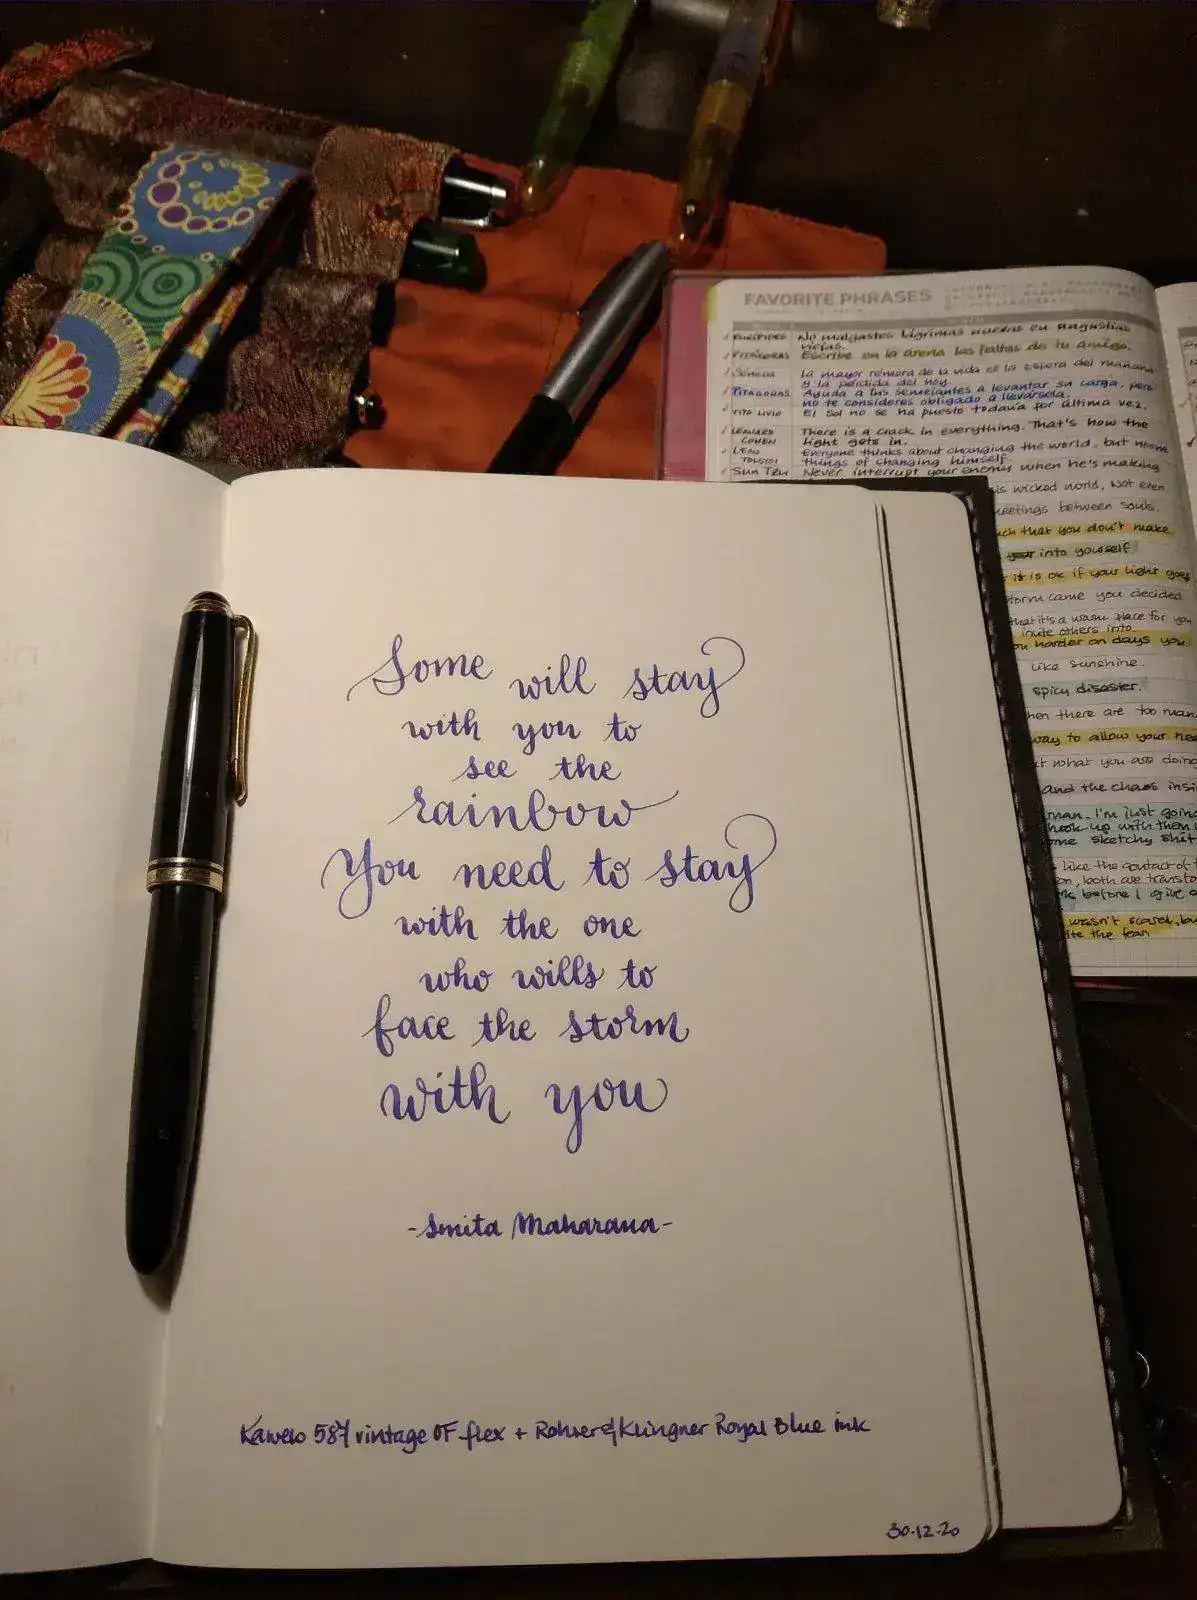 FAVORITE PHRASES
EURÍPIDES No malgastes lágrimas nuevas en angustias
viejas.
PITÁGORAS Escribe en la arena las faltas de tu amigo.
SÉNECA La mayor rémora de la vida es la espera del mañana
y la pérdida del hoy.
PITÁGORAS Ayuda a tus semejantes a levantar su carga, pero
no te consideres obligado a llevársela.
TITO LIVIO El Sol no se ha puesto todavía por última vez.
LEONARD COHEN There is a crack in everything. That's how the
light gets in.
LEON TOLSTOI Everyone thinks about changing the world, but noone
things of changing himself.
SUN TZU Never interrupt your enemy when he's making
is wicked world, Not even
meetings between souls.
uch that you don't make
into yourself
it is ok if your light goes
storm came you decided
that it's a warm place for you
invite others into.
ou harder on days you
like sunshine.
spicy disaster.
hen there are too man
way to allow your hea
t what you are doing
and the chaos insi
man. I'm just going
hook up with them
ome sketchy shit
like the contact of t
on, both are transfo
before I give
wasn't scared, bu
ite the fear
Some will stay
with you to
see the
rainbow
You need to stay
with the one
who wills to
face the storm
with you
-Smita Maharana-
Kaweco 587 vintage OF flex + Rohrer & Klingner Royal Blue ink
30-12-20